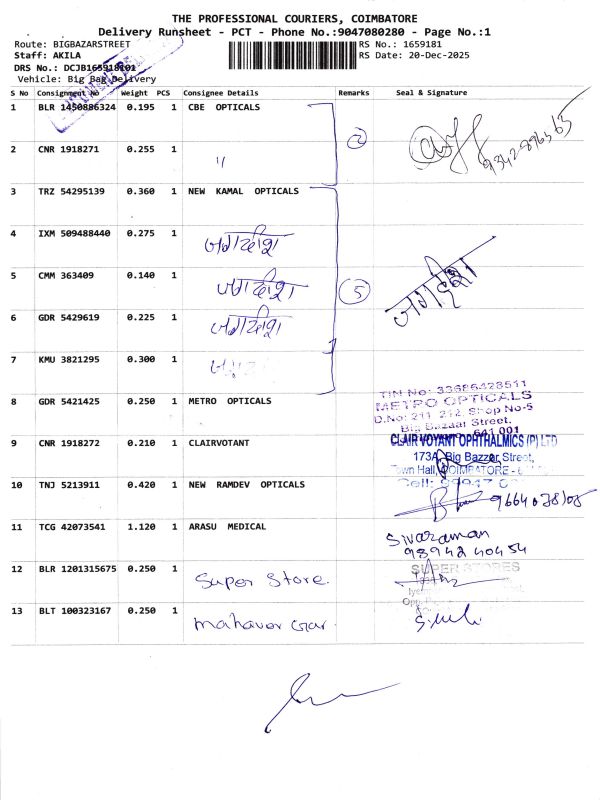 THE PROFESSIONAL COURIERS, COIMBATORE
Delivery Runsheet - PCT - Phone No.:9047080280 - Page No.:1
Route: BIGBAZARSTREET
RS No.: 1659181
Staff: AKILA
RS Date: 20-Dec-2025
DRS No.: DCJB165918101
Vehicle: Big Bag Delivery
S No Consignment No Weight PCS Consignee Details Remarks Seal & Signature
1 BLR 1450886324 0.195 1 CBE OPTICALS
2
2 CNR 1918271 0.255 1 〃
3 TRZ 54295139 0.360 1 NEW KAMAL OPTICALS
4 IXM 509488440 0.275 1 जगदीश
5 CMM 363409 0.140 1 जगदीश 5 जगदीश
6 GDR 5429619 0.225 1 जगदीश
7 KMU 3821295 0.300 1
8 GDR 5421425 0.250 1 METRO OPTICALS
TIN No: 33686428511
METRO OPTICALS
D.No: 211, 212, Shop No-5
Big Bazaar Street,
641 001
9 CNR 1918272 0.210 1 CLAIRVOTANT
CLAIR VOYANT OPHTHALMICS (P) LTD
173A, Big Bazzar Street,
Town Hall, COIMBATORE - 6
10 TNJ 5213911 0.420 1 NEW RAMDEV OPTICALS
11 TCG 42073541 1.120 1 ARASU MEDICAL
Sivaraman
98942 40454
12 BLR 1201315675 0.250 1 Super Store.
SUPER STORES
13 BLT 100323167 0.250 1